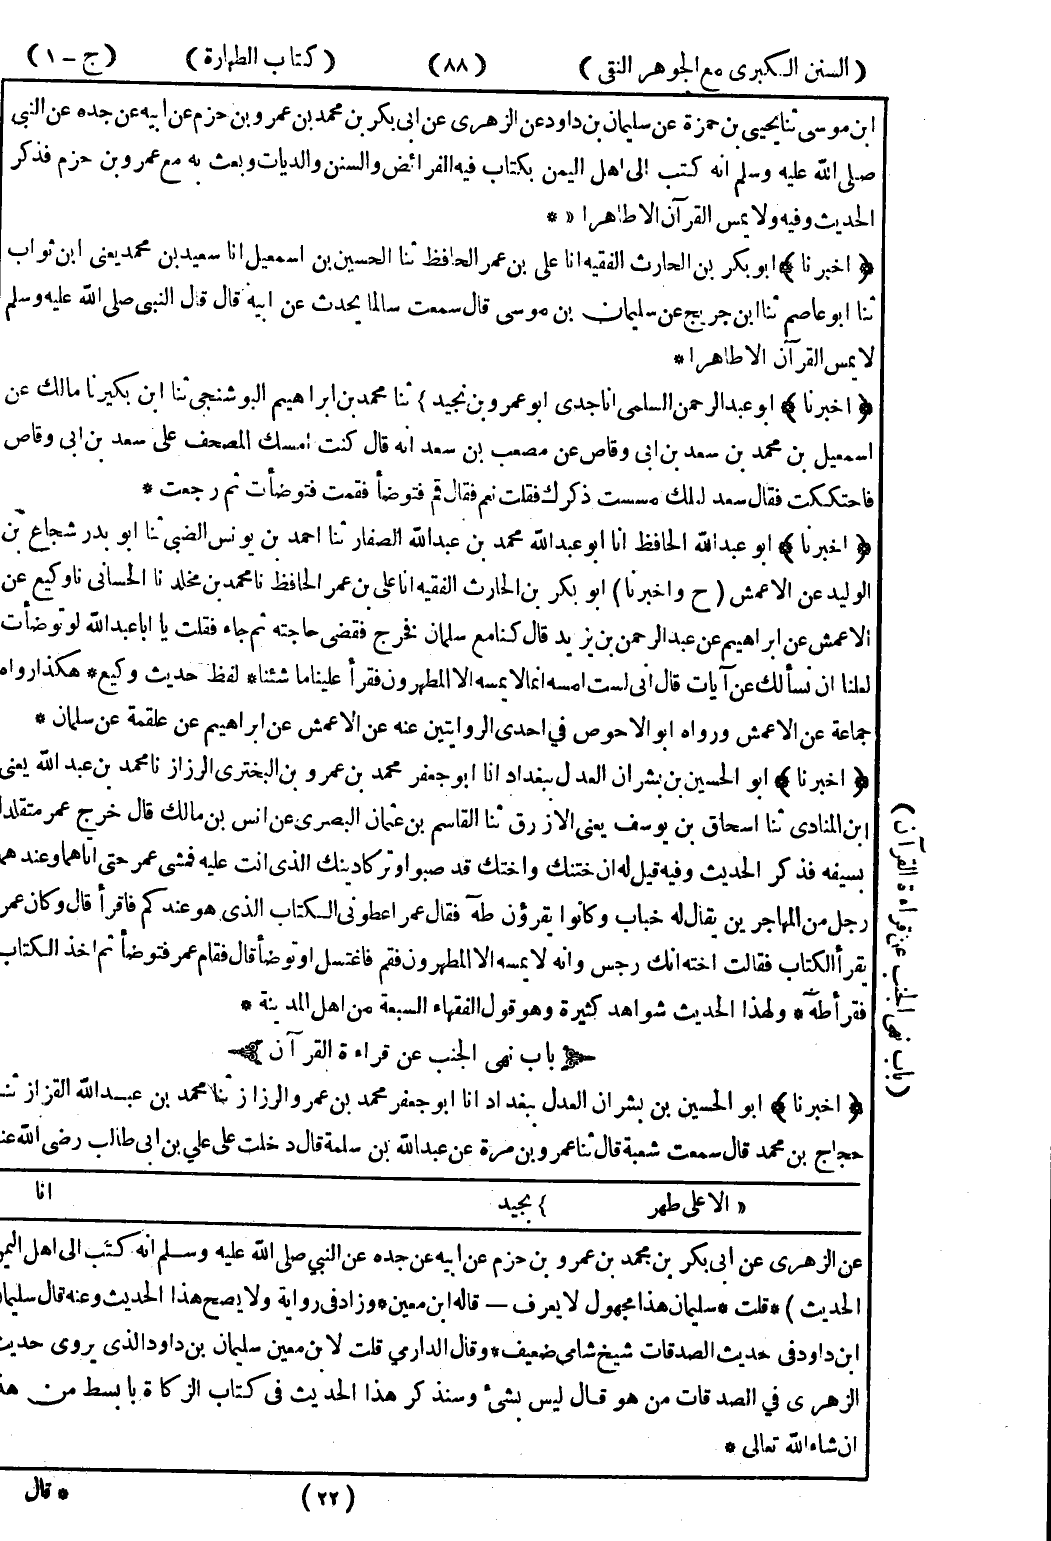 ( السنن الكبرى مع الجوهر النقى ) (٨٨) ( كتاب الطهارة ) ( ج - ١ )
ابن موسى ثنا يحيى بن حمزة عن سليمان بن داود عن الزهرى عن ابى بكر بن محمد بن عمرو بن حزم عن ابيه عن جده عن النبى
صلى الله عليه وسلم انه كتب الى اهل اليمن بكتاب فيه الفرائض والسنن والديات وبعث به مع عمرو بن حزم فذكر
الحديث وفيه ولا يمس القرآن الا طاهرا « *
﴿ اخبرنا ﴾ ابو بكر بن الحارث الفقيه انا على بن عمر الحافظ ثنا الحسين بن اسمعيل انا سعيد بن محمد يعنى ابن ثواب
ثنا ابو عاصم ثنا ابن جريج عن سليمان بن موسى قال سمعت سالما يحدث عن ابيه قال قال النبى صلى الله عليه وسلم
لا يمس القرآن الا طاهرا *
﴿ اخبرنا ﴾ ابو عبد الرحمن السلمى انا جدى ابو عمرو بن نجيد } ثنا محمد بن ابراهيم البوشنجى ثنا ابن بكير نا مالك عن
اسمعيل بن محمد بن سعد بن ابى وقاص عن مصعب بن سعد انه قال كنت امسك المصحف على سعد بن ابى وقاص
فاحتككت فقال سعد لعلك مسست ذكرك فقلت نعم فقال قم فتوضأ فقمت فتوضأت ثم رجعت *
﴿ اخبرنا ﴾ ابو عبد الله الحافظ انا ابو عبد الله محمد بن عبد الله الصفار ثنا احمد بن يونس الضبى ثنا ابو بدر شجاع بن
الوليد عن الاعمش ( ح واخبرنا ) ابو بكر بن الحارث الفقيه انا على بن عمر الحافظ نا محمد بن مخلد نا الحسانى نا وكيع عن
الاعمش عن ابراهيم عن عبد الرحمن بن يزيد قال كنا مع سلمان فخرج فقضى حاجته ثم جاء فقلت يا ابا عبد الله لو توضأت
لعلنا ان نسألك عن آيات قال انى لست امسه انما لا يمسه الا المطهرون فقرأ علينا ما شئنا * لفظ حديث وكيع * هكذا رواه
جماعة عن الاعمش ورواه ابو الاحوص في احدى الروايتين عنه عن الاعمش عن ابراهيم عن علقمة عن سلمان *
﴿ اخبرنا ﴾ ابو الحسين بن بشران العدل ببغداد انا ابو جعفر محمد بن عمرو بن البخترى الرزاز نا محمد بن عبد الله يعنى
ابن المنادى ثنا اسحاق بن يوسف يعنى الازرق ثنا القاسم بن عثمان البصرى عن انس بن مالك قال خرج عمر متقلدا
بسيفه فذكر الحديث وفيه قيل له ان ختنك واختك قد صبوا وتركا دينك الذى انت عليه فمشى عمر حتى اتاهما وعندهما
رجل من المهاجرين يقال له خباب وكانوا يقرؤن طه فقال عمر اعطونى الكتاب الذى هو عندكم فاقرأ قال وكان عمر
يقرأ الكتاب فقالت اخته انك رجس وانه لا يمسه الا المطهرون فقم فاغتسل او توضأ قال فقام عمر فتوضأ ثم اخذ الكتاب
فقرأ طه * ولهذا الحديث شواهد كثيرة وهو قول الفقهاء السبعة من اهل المدينة *
باب نهى الجنب عن قراءة القرآن
﴿ اخبرنا ﴾ ابو الحسين بن بشران العدل ببغداد انا ابو جعفر محمد بن عمرو الرزاز ثنا محمد بن عبد الله القزاز ثنا
حجاج بن محمد قال سمعت شعبة قال ثنا عمرو بن مرة عن عبد الله بن سلمة قال دخلت على علي بن ابى طالب رضى الله عنه
( باب نهى الجنب عن قراءة القرآن )
« الا على طهر } بجيد انا
عن الزهرى عن ابى بكر بن محمد بن عمرو بن حزم عن ابيه عن جده عن النبي صلى الله عليه وسلم انه كتب الى اهل اليمن
الحديث ) * قلت * سليمان هذا مجهول لا يعرف — قاله ابن معين * وزاد فى رواية ولا يصح هذا الحديث وعنه قال سليمان
ابن داود فى حديث الصدقات شيخ شامى ضعيف * وقال الدارمي قلت لابن معين سليمان بن داود الذى يروى حديث
الزهرى في الصدقات من هو قال ليس بشئ وسنذكر هذا الحديث فى كتاب الزكاة بابسط من هذا
ان شاء الله تعالى *
(٢٢) * قال